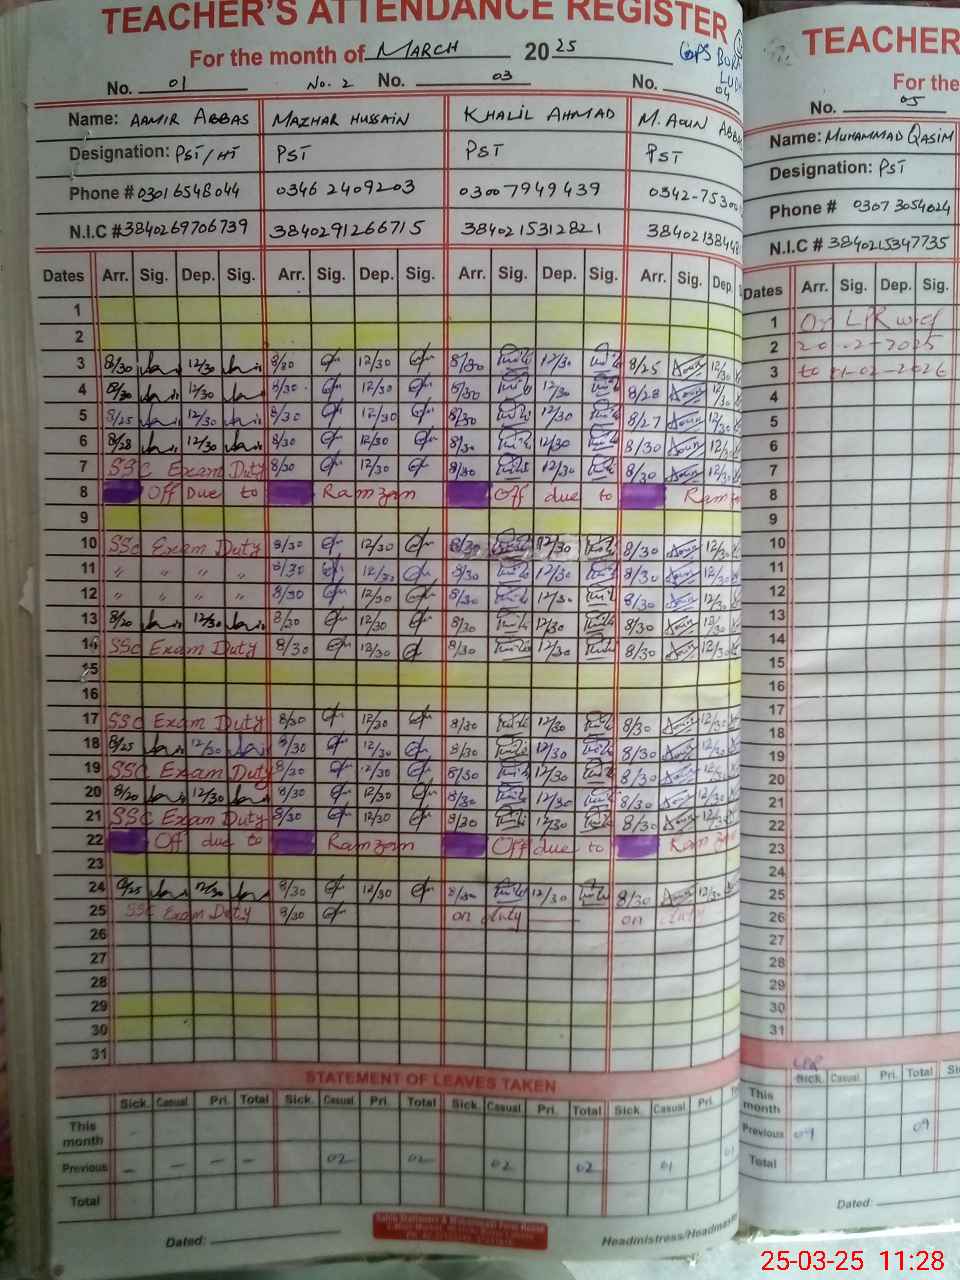 TEACHER'S ATTENDANCE REGISTER
For the month of MARCH 2025
No. 01 No. 2 No. 03 No. 04
Name: AAMIR ABBAS MAZHAR HUSSAIN KHALIL AHMAD M. AOUN ABBAS
Designation: PST/HT PST PST PST
Phone # 03016548044 0346 2409203 03007949439 0342-7530
N.I.C # 3840269706739 3840291266715 3840215312821 38402138448
Dates Arr. Sig. Dep. Sig. Arr. Sig. Dep. Sig. Arr. Sig. Dep. Sig. Arr. Sig. Dep.
1
2
3 8/30 12/30 8/30 12/30 8/30 12/30 8/25 12/30
4 8/30 12/30 8/30 12/30 8/30 12/30 8/28 12/30
5 8/25 12/30 8/30 12/30 8/30 12/30 8/27 12/30
6 8/28 12/30 8/30 12/30 8/30 12/30 8/30 12/30
7 SSC Exam Duty 8/30 12/30 8/30 12/30 8/30 12/30
8 Off Due to Ramzan Off due to Ramzan
9
10 SSC Exam Duty 8/30 12/30 8/30 12/30 8/30 12/30
11 " " " " 8/30 12/30 8/30 12/30 8/30 12/30
12 " " " " 8/30 12/30 8/30 12/30 8/30 12/30
13 8/20 12/30 8/30 12/30 8/30 12/30 8/30 12/30
14 SSC Exam Duty 8/30 12/30 8/30 12/30 8/30 12/30
15
16
17 SSC Exam Duty 8/30 12/30 8/30 12/30 8/30 12/30
18 8/25 12/30 8/30 12/30 8/30 12/30 8/30 12/30
19 SSC Exam Duty 8/30 12/30 8/30 12/30 8/30 12/30
20 8/20 12/30 8/30 12/30 8/30 12/30 8/30 12/30
21 SSC Exam Duty 8/30 12/30 8/30 12/30 8/30 12/30
22 Off due to Ramzan Off due to Ramzan
23
24 8/25 12/30 8/30 12/30 8/30 12/30 8/30 12/30
25 SSC Exam Duty 8/30 on duty on duty
26
27
28
29
30
31
STATEMENT OF LEAVES TAKEN
Sick. Casual Pri. Total Sick. Casual Pri. Total Sick. Casual Pri. Total Sick. Casual Pri.
This month
Previous - - - - 02 02 02 02 01
Total
Dated:
Headmistress/Headmaster
TEACHER
For the
No. 05
Name: MUHAMMAD QASIM
Designation: PST
Phone # 0307 3054024
N.I.C # 3840215347735
Dates Arr. Sig. Dep. Sig.
1 On LPR w.e.f
2 20-2-2025
3 to 01-02-2026
4
5
6
7
8
9
10
11
12
13
14
15
16
17
18
19
20
21
22
23
24
25
26
27
28
29
30
31
LPR
Sick. Casual Pri. Total
This month
Previous 09 09
Total
Dated:
25-03-25 11:28